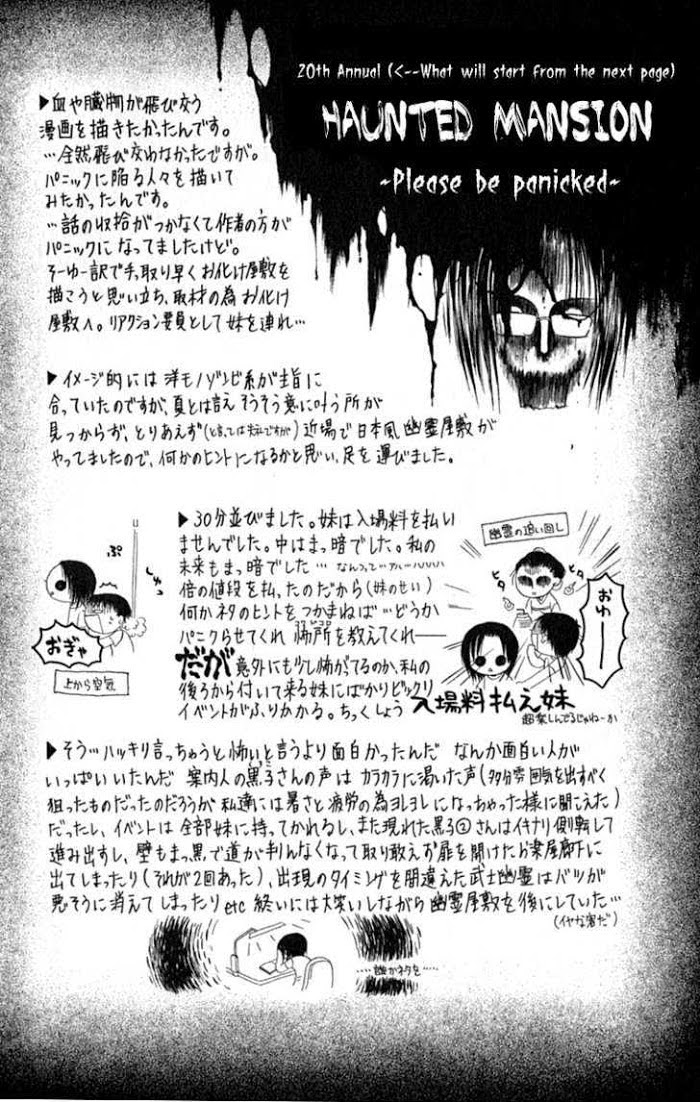 20th Annual (<--What will start from the next page)
HAUNTED MANSION
~Please be panicked~
▶血や臓物が飛び交う
漫画を描きたかったんです。
…全然飛び交わなかったですが。
パニックに陥る人々を描いて
みたかったんです。
…話の収拾がつかなくて作者の方が
パニックになってましたけど。
そーゆー訳で手っ取り早くお化け屋敷を
描こうと思い立ち、取材の為お化け
屋敷へ。リアクション要員として妹を連れ…
▶イメージ的には洋モノゾンビ系が主旨に
合っていたのですが、夏とは言えそうそう意に叶う所が
見つからず、とりあえず(と言っては失礼ですが)近場で日本風幽霊屋敷が
やってましたので、何かのヒントになるかと思い、足を運びました。
▶30分並びました。妹は入場料を払い
ませんでした。中はまっ暗でした。私の
未来もまっ暗でした…
倍の値段を払ったのだから(妹のせい)
何かネタのヒントをつかまねば…どうか
パニクらせてくれ 怖所を教えてくれ――
だが 意外にも少し怖がってるのか、私の
後ろから付いて来る妹にばかりビックリ
イベントがふりかかる。ちっくしょう
入場料払え妹
超楽しんでるじゃねーか
ぷ
しゅっ
おぎゃ
上から空気
幽霊の追い回し
ヒタ
ヒタ
おゆー
▶そう…ハッキリ言っちゃうと怖いと言うより面白かったんだ なんか面白い人が
いっぱいいたんだ 案内人の黒子さんの声はカラカラに渇いた声(多分雰囲気を出すべく
狙ったものだったのだろうが私達には暑さと疲労の為ヨレヨレになっちゃった様に聞えた)
だったし、イベントは全部妹に持ってかれるし、また現れた黒子②さんはイキナリ側転して
進み出すし、壁もまっ黒で道が判んなくなって取り敢えず扉を開けたら楽屋廊下に
出てしまったり(それが2回あった)、出現のタイミングを間違えた武士幽霊はバツが
悪そうに消えてしまったりetc 終いには大笑いしながら幽霊屋敷を後にしていた…
(イヤな客だ)
……誰かネタを……